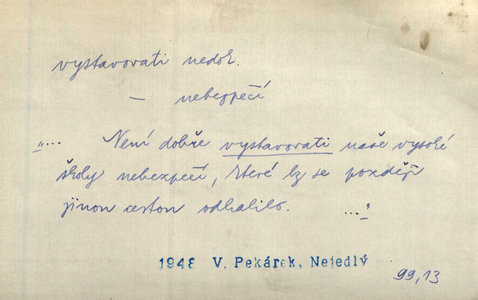 vystavovati nedok.
— nebezpečí
„... Není dobře vystavovati naše vysoké
školy nebezpečí, které by se později
jinou cestou odhalilo. ..."
1948 V. Pekárek, Nejedlý
99,13